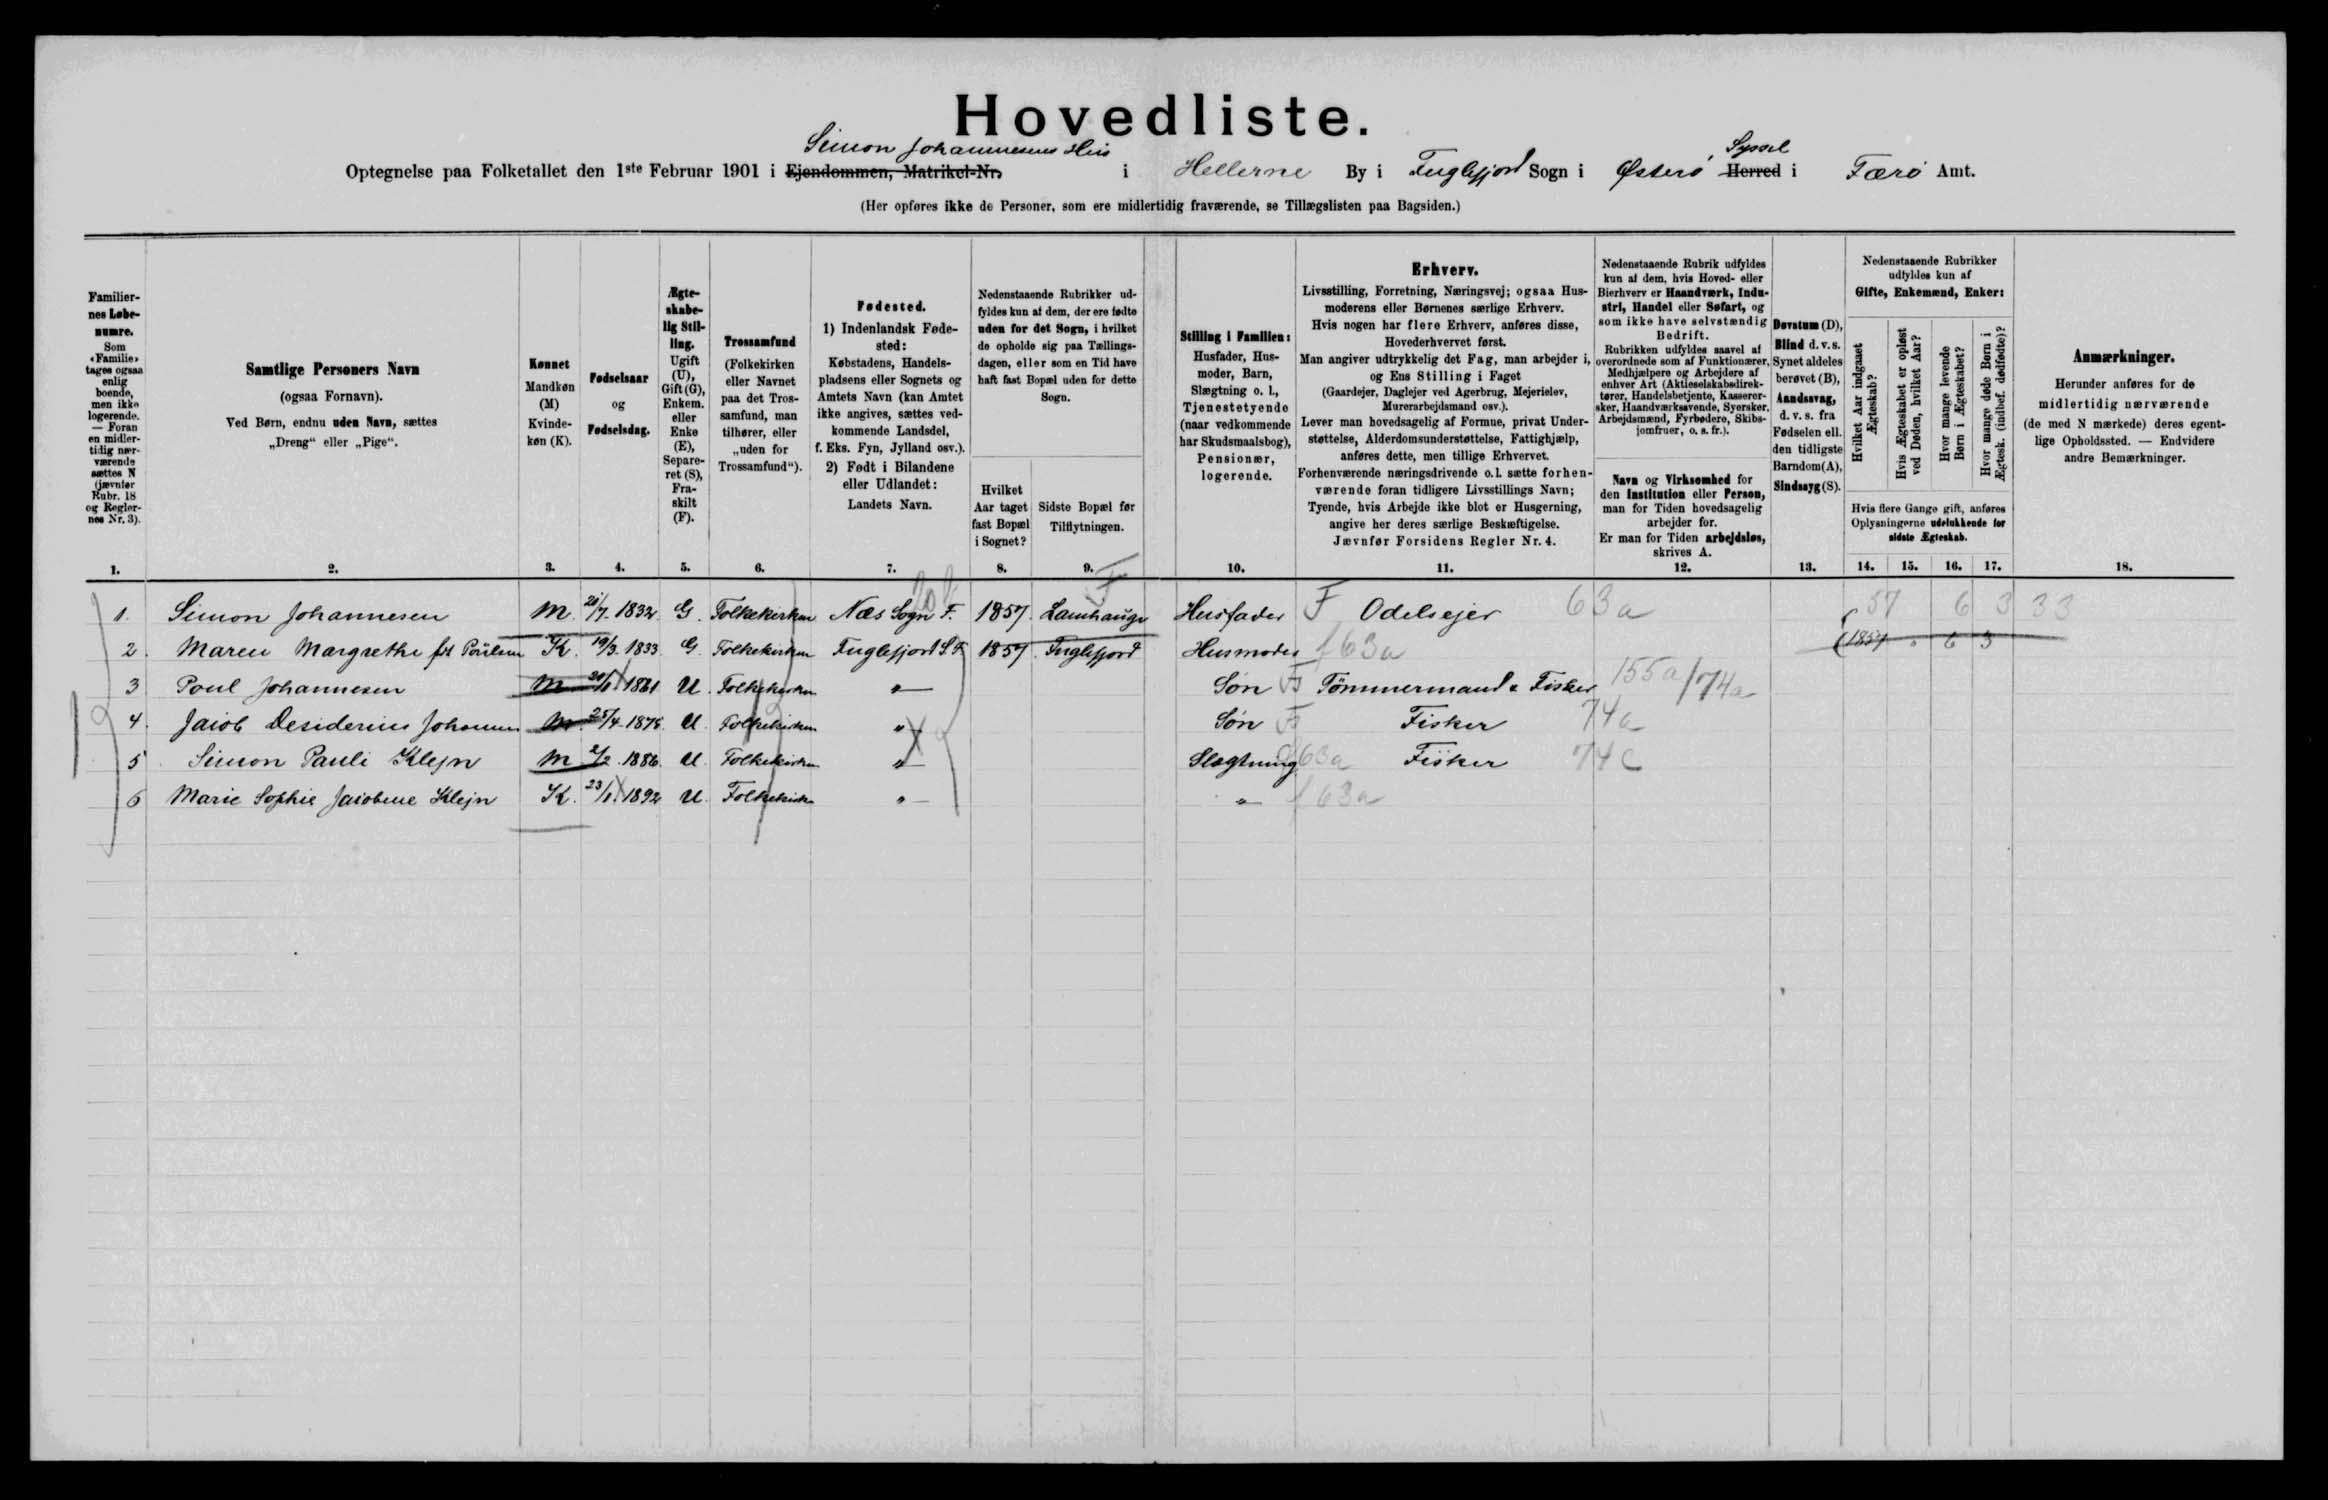 Hovedliste.
Simon Johannesens Hus
Syssel
Optegnelse paa Folketallet den 1ste Februar 1901 i Ejendommen, Matrikel-Nr. i Hellerne By i Fuglefjord Sogn i Østerø Herred i Færø Amt.
(Her opføres ikke de Personer, som ere midlertidig fraværende, se Tillægslisten paa Bagsiden.)
Familiernes Løbenumre.
Som «Familie» tages ogsaa enlig boende, men ikke logerende. — Foran en midlertidig nærværende sættes N (jævnfør Rubr. 18 og Reglernes Nr. 3).
1.
Samtlige Personers Navn
(ogsaa Fornavn).
Ved Børn, endnu uden Navn, sættes
„Dreng“ eller „Pige“.
2.
Kønnet
Mandkøn (M)
Kvindekøn (K).
3.
Fødselsaar
og
Fødselsdag.
4.
Ægteskabelig Stilling.
Ugift (U), Gift (G), Enkem. eller Enke (E), Separeret (S), Fraskilt (F).
5.
Trossamfund
(Folkekirken eller Navnet paa det Trossamfund, man tilhører, eller „uden for Trossamfund“).
6.
Fødested.
1) Indenlandsk Fødested:
Købstadens, Handelspladsens eller Sognets og Amtets Navn (kan Amtet ikke angives, sættes vedkommende Landsdel, f. Eks. Fyn, Jylland osv.).
2) Født i Bilandene eller Udlandet:
Landets Navn.
7.
Nedenstaaende Rubrikker udfyldes kun af dem, der ere fødte uden for det Sogn, i hvilket de opholde sig paa Tællingsdagen, eller som en Tid have haft fast Bopæl uden for dette Sogn.
Hvilket Aar taget fast Bopæl i Sognet?
8.
Sidste Bopæl før Tilflytningen.
9.
Stilling i Familien:
Husfader, Husmoder, Barn, Slægtning o. l., Tjenestetyende (naar vedkommende har Skudsmaalsbog), Pensionær, logerende.
10.
Erhverv.
Livsstilling, Forretning, Næringsvej; ogsaa Husmoderens eller Børnenes særlige Erhverv.
Hvis nogen har flere Erhverv, anføres disse, Hovederhvervet først.
Man angiver udtrykkelig det Fag, man arbejder i, og Ens Stilling i Faget
(Gaardejer, Daglejer ved Agerbrug, Mejerielev, Murerarbejdsmand osv.).
Lever man hovedsagelig af Formue, privat Understøttelse, Alderdomsunderstøttelse, Fattighjælp, anføres dette, men tillige Erhvervet.
Forhenværende næringsdrivende o.l. sætte forhenværende foran tidligere Livsstillings Navn; Tyende, hvis Arbejde ikke blot er Husgerning, angive her deres særlige Beskæftigelse.
Jævnfør Forsidens Regler Nr. 4.
11.
Nedenstaaende Rubrik udfyldes kun af dem, hvis Hoved- eller Bierhverv er Haandværk, Industri, Handel eller Søfart, og som ikke have selvstændig Bedrift.
Rubrikken udfyldes saavel af overordnede som af Funktionærer, Medhjælpere og Arbejdere af enhver Art (Aktieselskabsdirektører, Handelsbetjente, Kasserersker, Haandværkssvende, Syersker, Arbejdsmænd, Fyrbødere, Skibsjomfruer, o. s. fr.).
Navn og Virksomhed for den Institution eller Person, man for Tiden hovedsagelig arbejder for.
Er man for Tiden arbejdsløs, skrives A.
12.
Døvstum (D), Blind d. v. s. Synet aldeles berøvet (B), Aandssvag, d. v. s. fra Fødselen ell. den tidligste Barndom (A), Sindssyg (S).
13.
Nedenstaaende Rubrikker udfyldes kun af
Gifte, Enkemænd, Enker:
Hvilket Aar indgaaet Ægteskab?
Hvis Ægteskabet er opløst ved Døden, hvilket Aar?
Hvor mange levende Børn i Ægteskabet?
Hvor mange døde Børn i Ægtesk. (indbef. dødfødte)?
Hvis flere Gange gift, anføres Oplysningerne udelukkende for sidste Ægteskab.
14. 15. 16. 17.
Anmærkninger.
Herunder anføres for de midlertidig nærværende (de med N mærkede) deres egentlige Opholdssted. — Endvidere andre Bemærkninger.
18.
1. Simon Johannesen M. 1832 G. Folkekirken Næs Sogn F. 1857 Lamhauge Husfader F Odelsejer 63a 57 6 3 33
2. Maren Margrethe fdt Poulsen K. 19/3 1833 G. Folkekirken Fuglefjord S. F. 1857 Fuglefjord Husmoder f 63a 1857 " 6 3
3 Poul Johannesen M 1861 U. Folkekirken " Søn Tømmermand & Fisker 155a/74a
4. Jacob Desiderius Johannesen M. 25/4 U. Folkekirken " Søn Fisker 74a
5 Simon Pauli Klejn M 2/2 1886. U. Folkekirken " Slægtning 63a Fisker 74c
6 Marie Sophie Jacobine Klejn K. 1892 U. Folkekirken " " f 63a